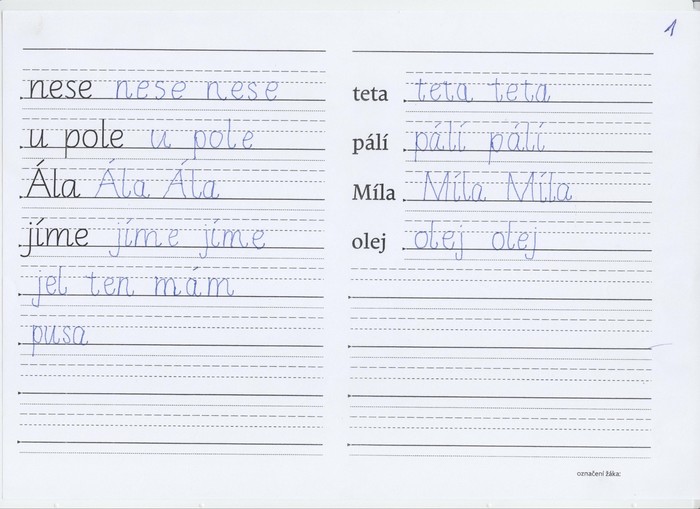 1
nese nese nese
u pole u pole
Ála Ála Ála
jíme jíme jíme
jel ten mám
pusa
teta teta teta
pálí pálí pálí
Míla Míla Míla
olej olej olej
označení žáka: